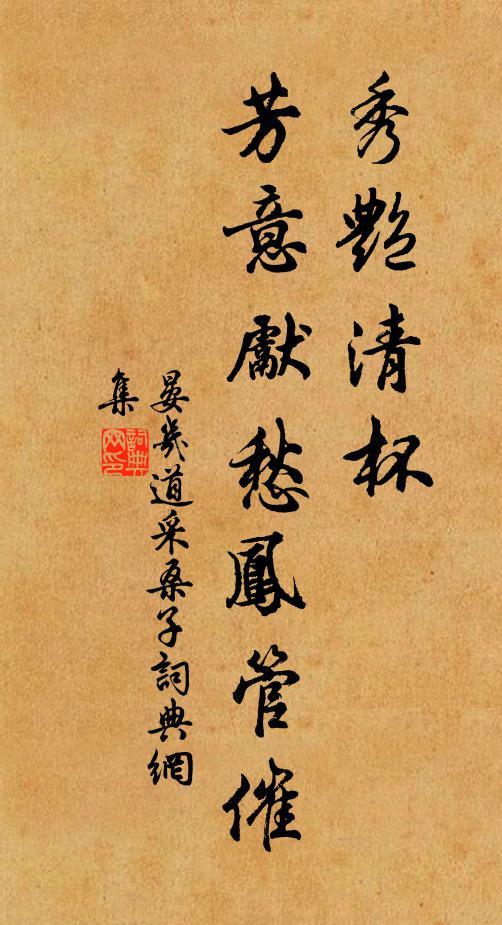 秀艷清杯
芳意獻愁鳳管催
晏幾道采桑子詞典網
集
詞典网印